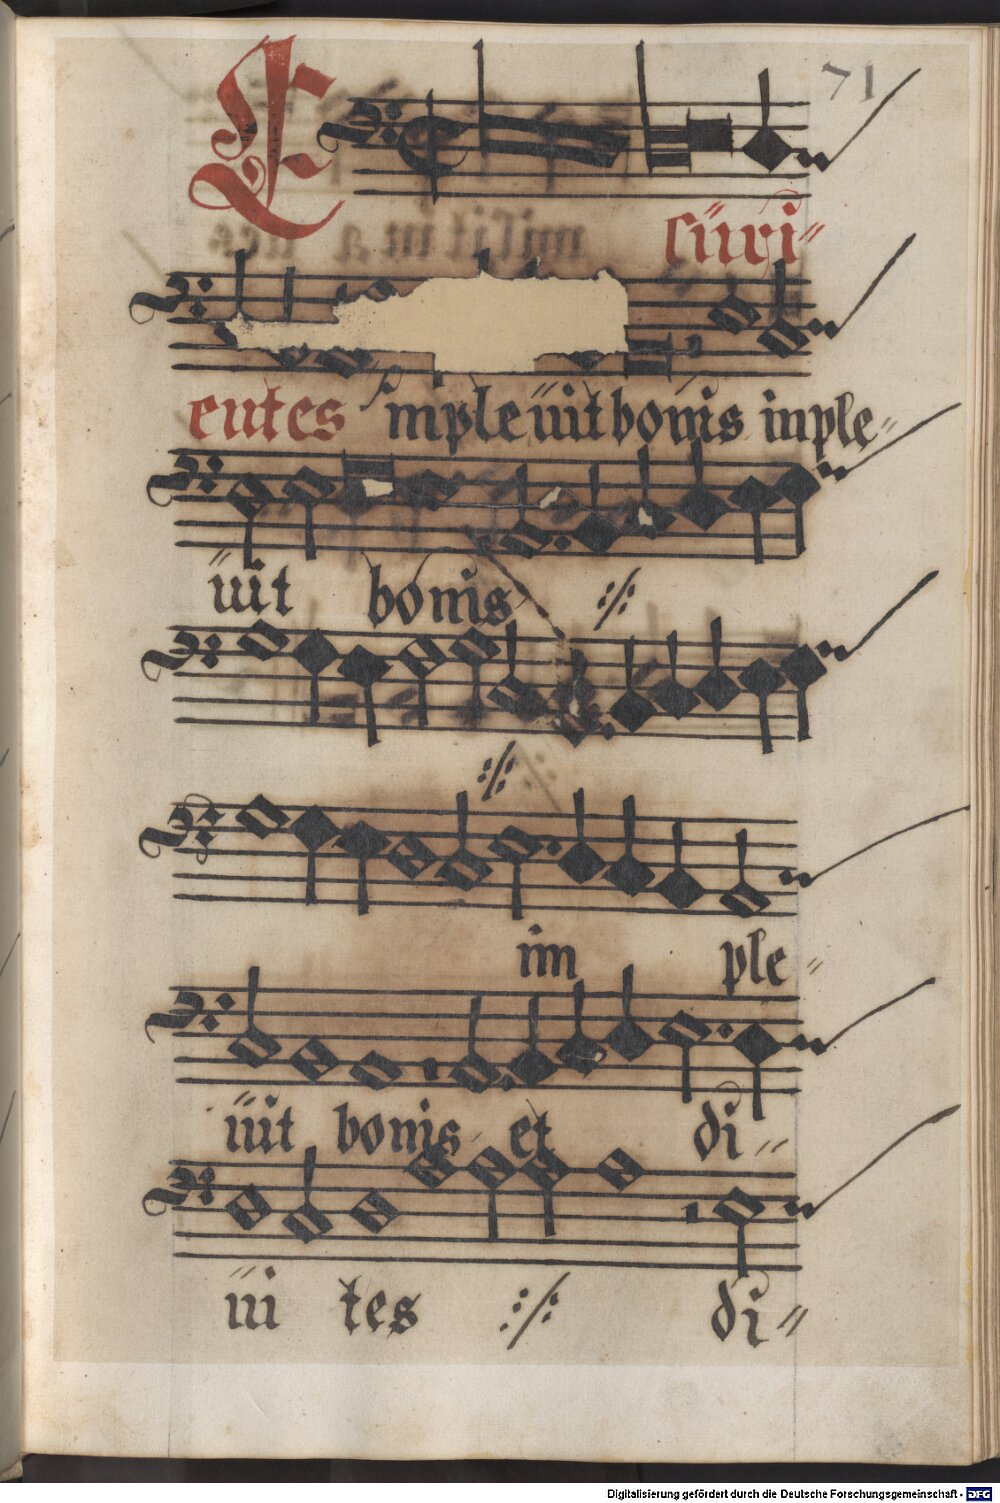 71
E suri=
entes Impleuit bonis inple=
uit bonis :/:
:/:
im ple=
uit bonis et di=
ui tes :/: di=
Digitalisierung gefördert durch die Deutsche Forschungsgemeinschaft - DFG